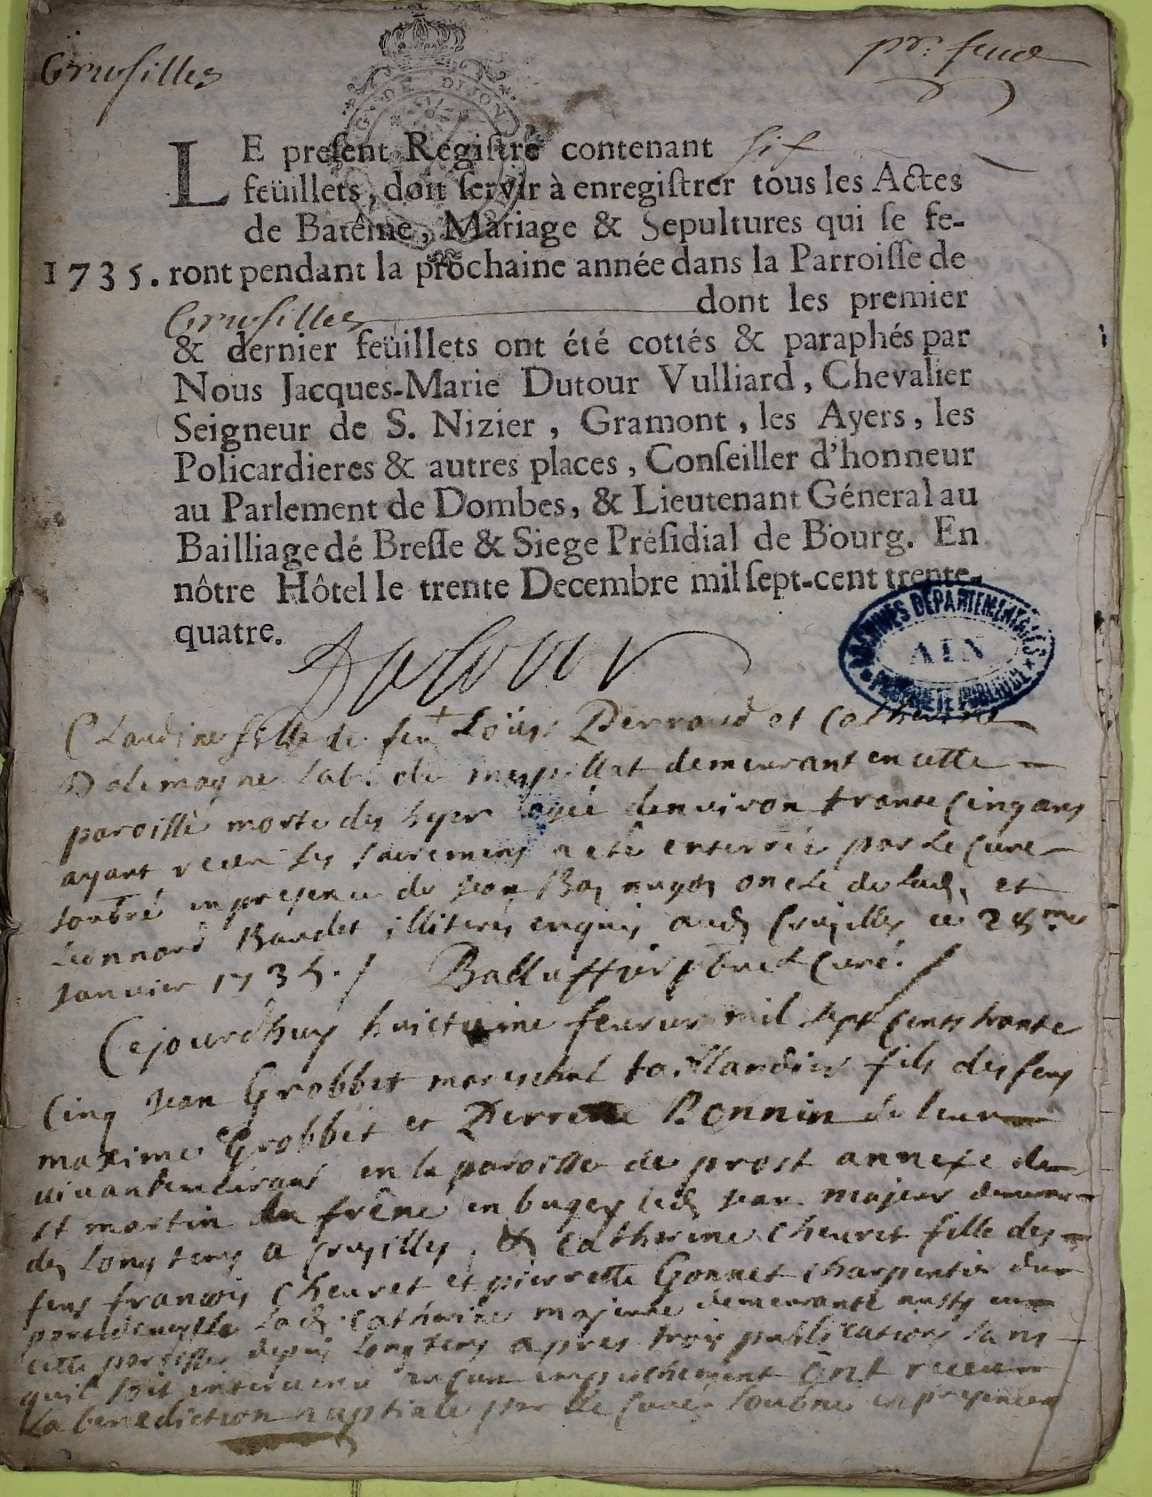 Crusilles
pr. feuil
G. DE DIJON
LE preſent Regiſtre contenant six
feüillets, doit ſervir à enregiſtrer tous les Actes
de Batême, Mariage & Sepultures qui ſe fe-
1735. ront pendant la prochaine année dans la Parroiſſe de
Crusilles dont les premier
& dernier feüillets ont été cottés & paraphés par
Nous Jacques-Marie Dutour Vulliard, Chevalier
Seigneur de S. Nizier, Gramont, les Ayers, les
Policardieres & autres places, Conſeiller d'honneur
au Parlement de Dombes, & Lieutenant Géneral au
Bailliage dé Breſſe & Siege Préſidial de Bourg. En
nôtre Hôtel le trente Decembre mil ſept-cent trente-
quatre.
Dutour
ARCHIVES DÉPARTEMENTALES AIN PROPRIÉTÉ PUBLIQUE
Claudine fille de feu Loüis Perraud et Catherine
Dalemagne lab. de demeurant en cette
paroisse morte des hyer agée denviron trante cinq ans
ayant receu les sacremens a eté enterrée par le curé
soubné en presence de Jean oncle de lad. et
Leonnard Baudet illiterés enquis aud. Crusilles ce 28me
Janvier 1735. / Balluffier pbre et Curé. /
Cejourdhuy huictieme feuvrier mil sept cents trante
cinq Jean Grobbet mareschal taillandier fils des feus
maxime Grobbet et Perrette Bonnin de leur
vivant en la paroisse de prost annexe de
st martin du frêne en bugey led. Jean majeur demeurant
des long tems a Crusilles, & Catherine Cheuret fille des
feus francois Cheuret et pierrette Gonnet charpentier dud.
lad. Catherine majeure demeurante aussy en
cette paroisse depuis long tems apres trois publications sans
quil soit intervenu aucun empechement ônt receu
La benediction nuptiale par le curé soubné en presence